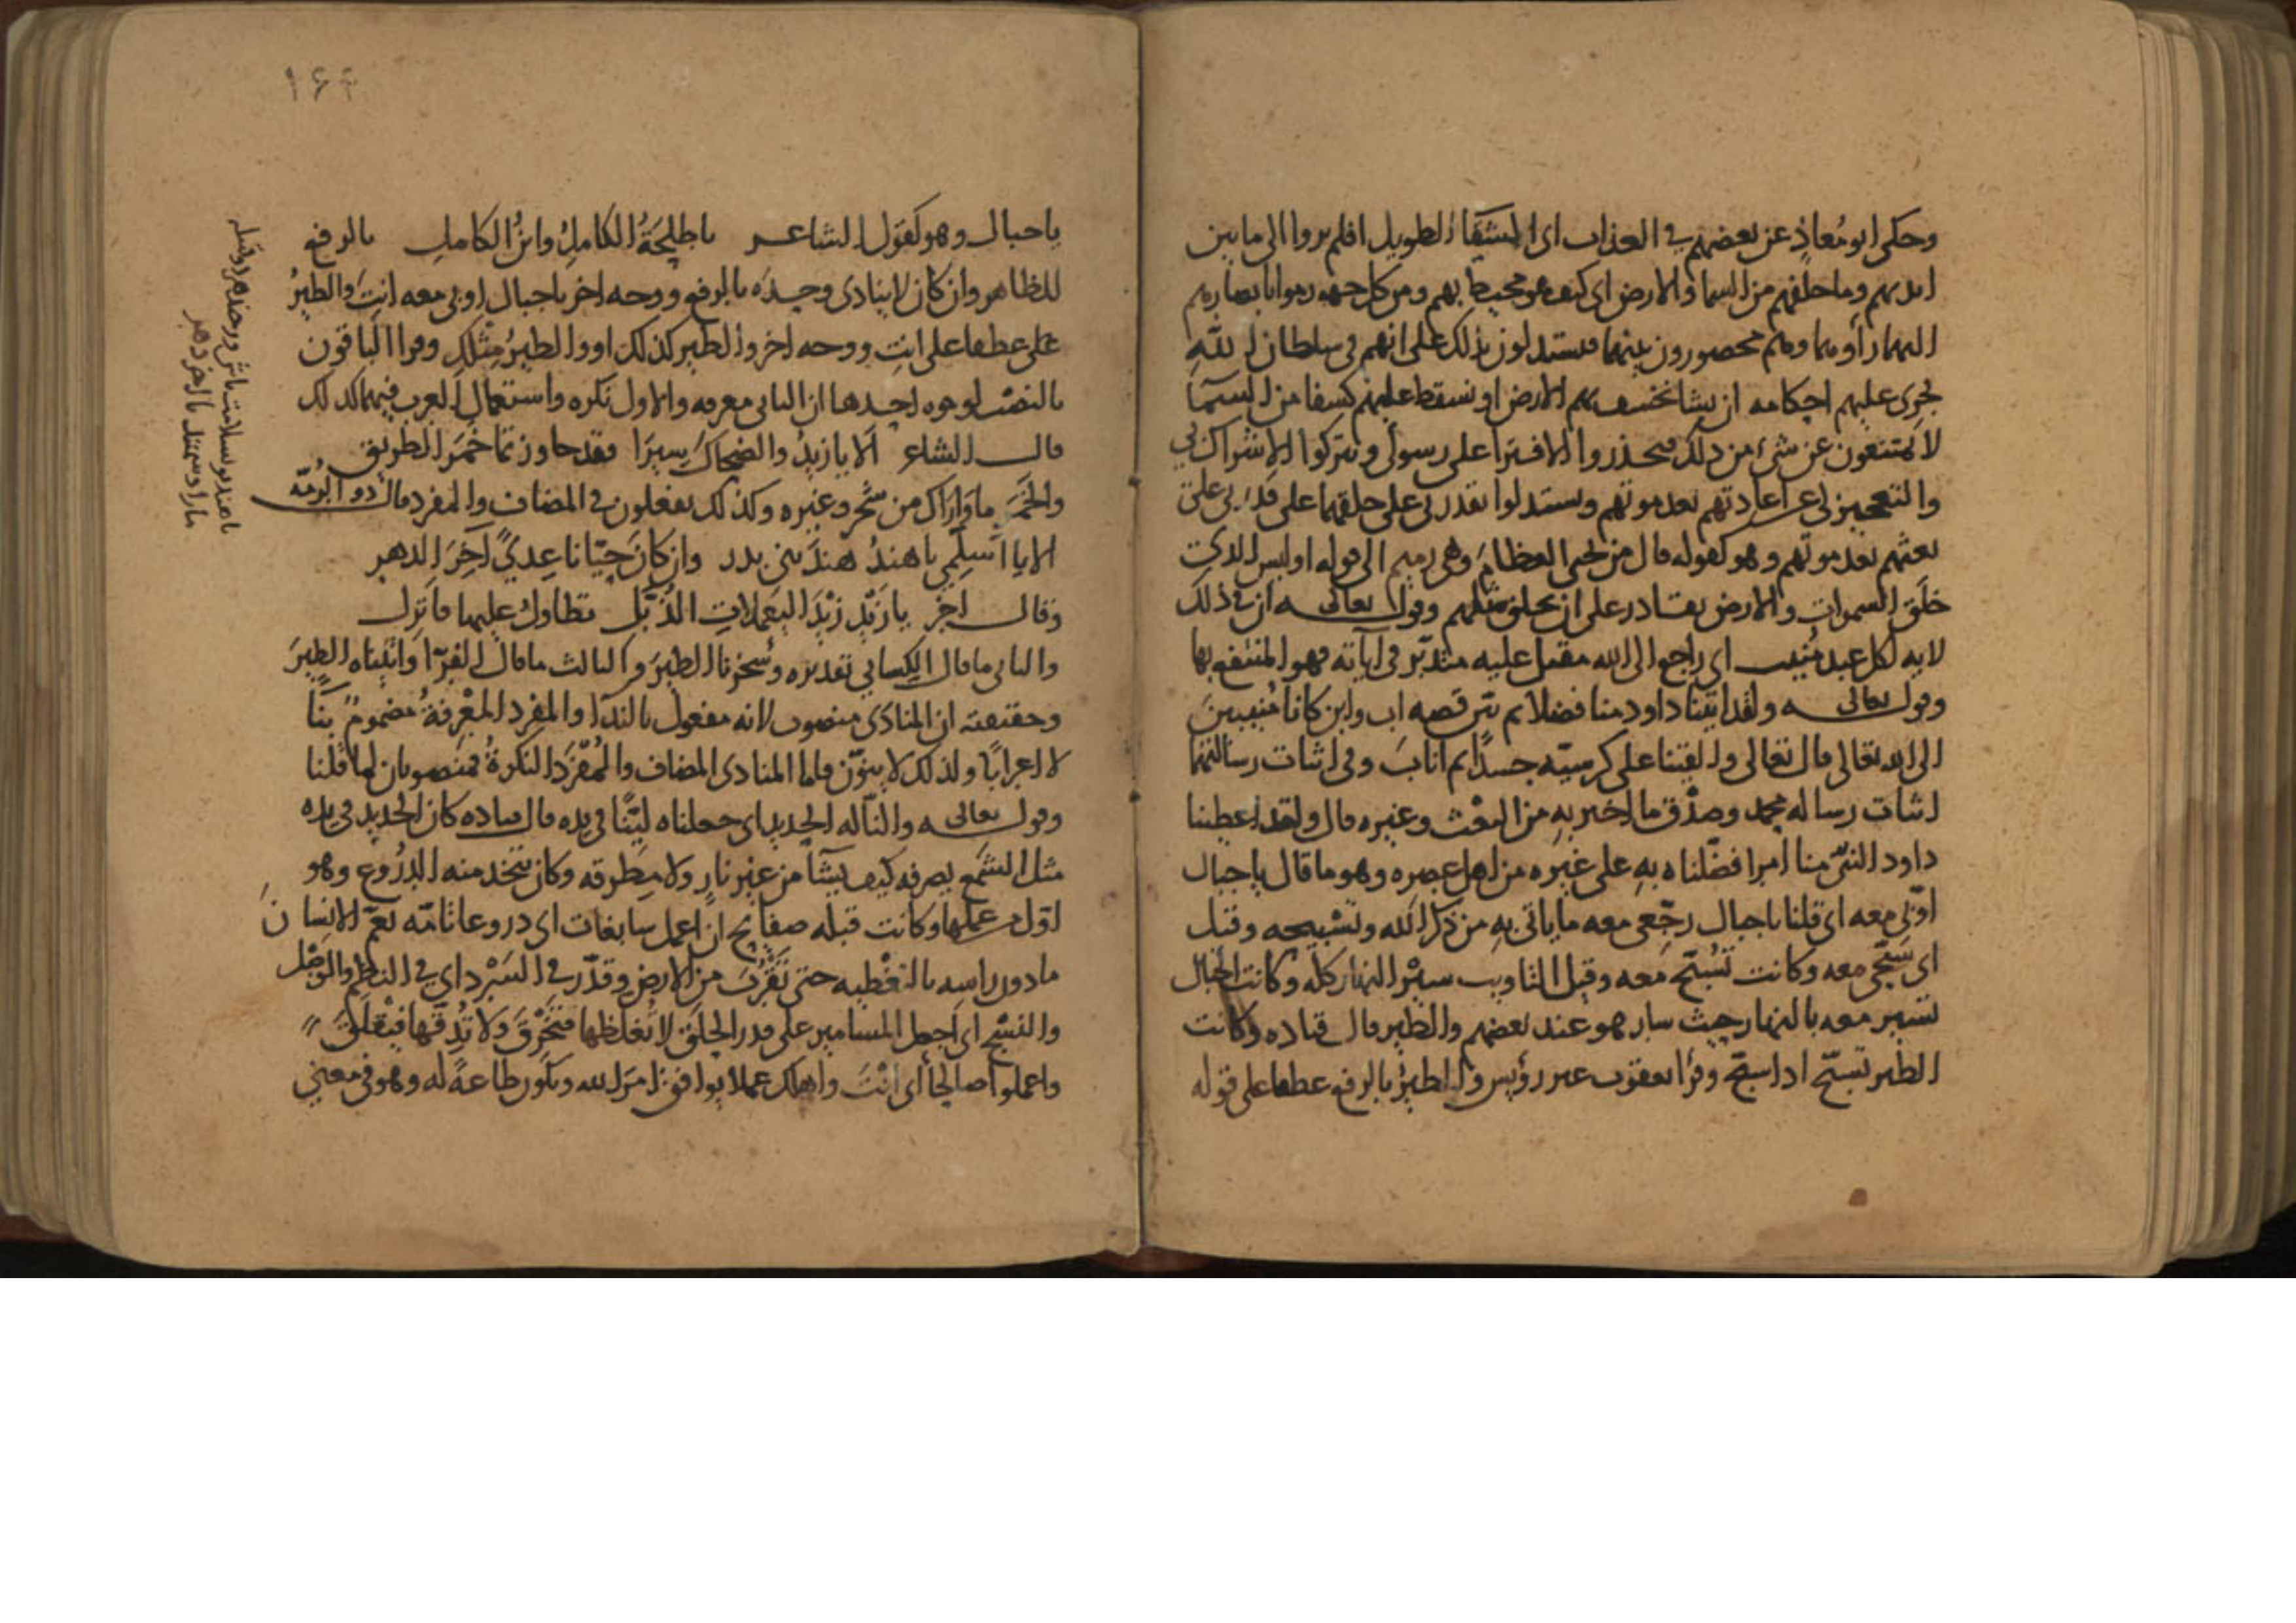 وحكى ابو مُعاذٍ عن بعضهم في العذاب اى الشقا الطويل افلم يروا الى ما بين
ايديهم وما خلفهم من السما والارض اى كيف هو محيط بهم ومن كل جهه رموا بابصارهم
اليهما رأوهما وهم محصورون بينهما فيستدلون بذلك على انهم فى سلطان الله
تجرى عليهم احكامه ان يشا نخسف بهم الارض او نسقط عليهم كسفا من السمآ
لا يمتنعون عن شئ من ذلك فيحذروا الافترا على رسولى ويتركوا الاشراك بى
والتعجيز لى عن اعادتهم بعد موتهم ويستدلوا بقدرتى على خلقهما على قدرتى على
بعثهم بعد موتهم وهو كقوله قال من يحيى العظام وهى رميم الى قوله اوليس الذى
خلق السموات والارض بقادر على ان يخلق مثلهم وقوله تعالى ان فى ذلك
لايه لكل عبد منيب اى راجع الى الله مقبل عليه متدبّر فى اياته فهو المنتفع بها
وقوله تعالى ولقد اتينا داود منا فضلا ثم بيّن قصه اب وابن كانا مُنيبين
الى الله تعالى قال تعالى والقينا على كرسيّه جسدًا ثم اناب وفى اثبات رسالتهما
اثبات رساله محمد وصدْق ما اخبر به من البعْث وغيره قال ولقد اعطينا
داود النبىّ منا امرا فضّلناه به على غيره من اهل عصره وهو ما قال يا جبال
اوّبى معه اى قلنا يا جبال رجّعى معه ما ياتى به من ذكر الله وتسبيحه وقيل
اى سبّحى معه وكانت تسبّح معه وقيل التاويب سير النهار كله وكانت الجبال
تسير معه بالنهار حيث سار هو عند بعضهم والطير قال قتاده وكانت
الطير تسبّح اذا سبّح وقرأ يعقوب غير رويس والطيرُ بالرفع عطفا على قوله
١۶۴
يا جبال وهو كقول الشاعر يا طلحةُ الكاملُ وابنُ الكاملِ بالرفع
للظاهر وان كان لا ينادى وحده بالرفع ووجه اخر يا جبال اوبى معه انتِ والطيرُ
على عطفها على انتِ ووجه اخر والطير كذلك او والطيرُ مثلكِ وقرا الباقون
بالنصب لوجوه احدها ان الثانى معرفه والاول نكره واستعمال العرب فيهما كذلك
قال الشاعر الا يا زيدُ والضحاكَ سيرَا فقد جاوزتما خَمَرَ الطريق
والخمَر ما واراك من شجر وغيره وكذلك يفعلون فى المضاف والمفرد قال ذو الرُمّه
الا يا اسلمى يا هندُ هندَ بنى بدر وان كان حيّانا عِدىً آخِرَ الدهر
وقال اخر يا زَيْد زَيْدَ اليعملاتِ الذُّبَّل تطاول عليها فانزل
والثانى ما قال الكسائى تقديره وسخرنا الطيرَ والثالث ما قال الفرّآ واتيناه الطيرَ
وحقيقته ان المنادَى منصوب لانه مفعول بالندآ والمفرد المعْرفةُ مضمومٌ بنآً
لا اعرابًا ولذلك لا ينوّن فاما المنادى المضاف والمُفرَد النكرةُ فمنصوبان لما قلنا
وقوله تعالى والنّا له الحديد اى جعلناه ليّنًا فى يده قال قتاده كان الحديد فى يده
مثل الشمع يصرفه كيف يشآ من غير نارٍ ولا مِطرقه وكان يتخذ منه الدُرُوع وهو
اوّل من عملها وكانت قبله صفايح ان اعمل سابغات اى دروعا تامّه تعمّ الانسان
ما دون راسه بالتغْطيه حتى تَقْرُبَ من الارض وقدّر فى السَرْد اى فى النظم والوَصْل
والنسْج اى اجعل المسامير على قدر الحِلَق لا تُغلظها فتَخْرق ولا تُدقّها فتقْلَق
واعملوا صالحًا اى انتَ واهلك عملا يوافق امرَ الله ويكون طاعةً له وهو فى معنى